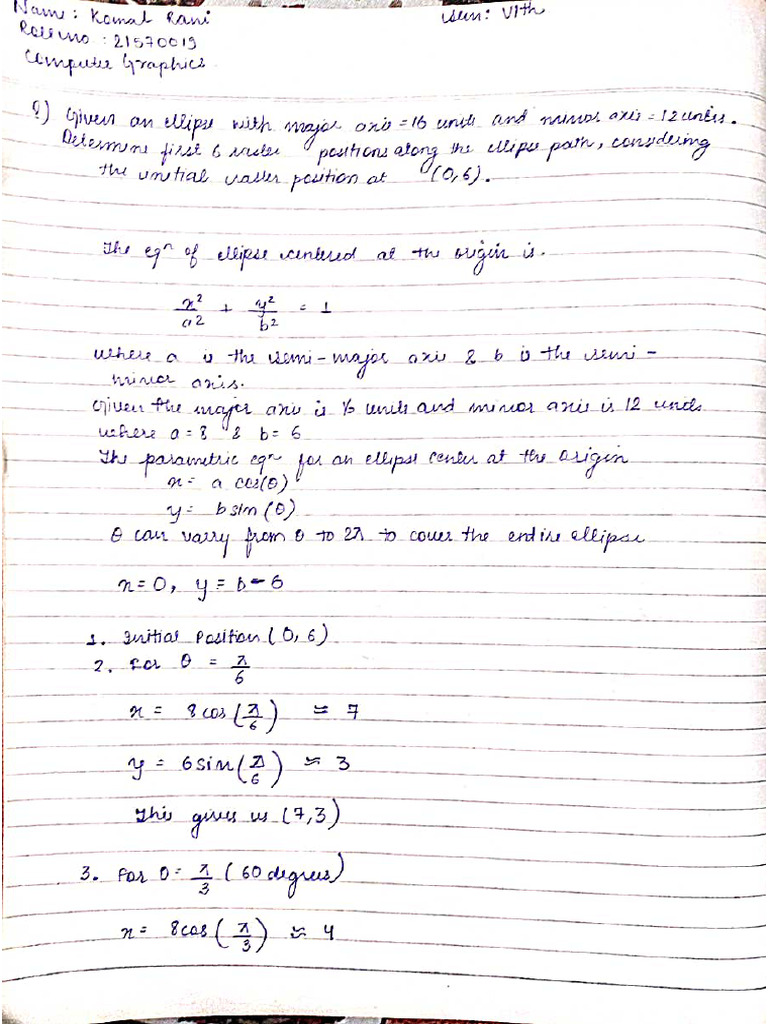 Name : Komal Rani
Sem: VIth
Roll no : 21570019
Computer Graphics
Q) Given an ellipse with major axis = 16 units and minor axis = 12 units.
Determine first 6 raster positions along the ellipse path, considering
the initial raster position at (0,6).
The eqⁿ of ellipse centered at the origin is.
x²/a² + y²/b² = 1
where a is the semi-major axis & b is the semi-
minor axis.
Given the major axis is 16 units and minor axis is 12 units
where a = 8 & b = 6
The parametric eqⁿ for an ellipse center at the origin
x = a cos(θ)
y = b sin(θ)
θ can varry from 0 to 2π to cover the entire ellipse
x = 0, y = b = 6
1. Initial Position (0, 6)
2. For θ = π/6
x = 8 cos(π/6) ≈ 7
y = 6 sin(π/6) ≈ 3
This gives us (7,3)
3. For θ = π/3 (60 degrees)
x = 8cos(π/3) ≈ 4